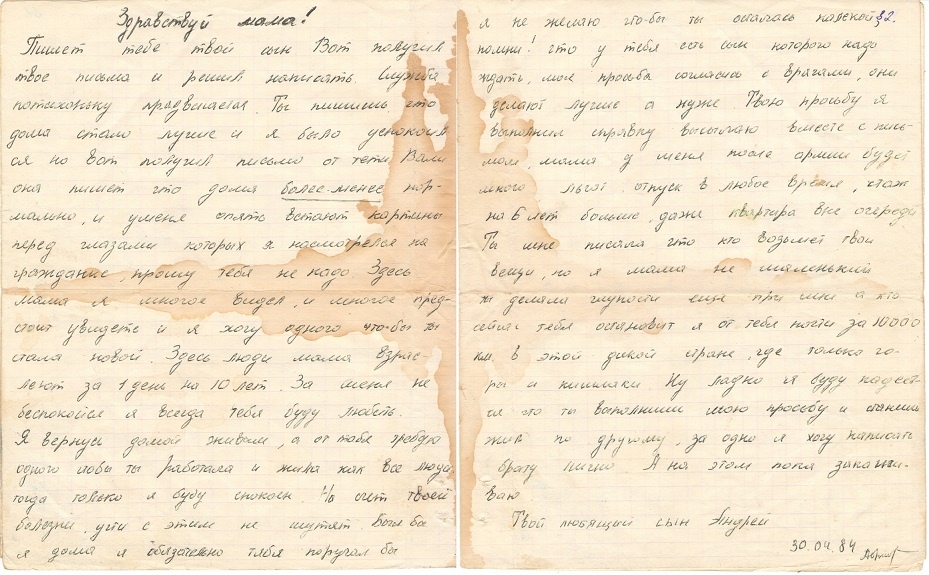 Здравствуй мама!
Пишет тебе твой сын Вот получил
твое письма и решил написать. Служба
потихоньку продвигается. Ты пишишь что
дома стало лучше и я было успокоил
ся но вот получил письмо от тети Вали
она пишет что дома более-менее нор-
мально, и уменя опять встают картины
перед глазами которых я насмотрелся на
гражданке, прошу тебя не надо. Здесь
мама я многое видел, и многое пред-
стоит увидеть и я хочу одного что-бы ты
стала новой. Здесь люди мама взрас-
леют за 1 день на 10 лет. За меня не
беспокойся я всегда тебя буду любить.
Я вернусь домой живым, а от тебя требую
одного чобы ты работала и жила как все люди
тогда только я буду спокоен. На счет твоей
болезни, учти с этим не шутят. Был бы
я дома я обязательно тебя поругал бы
я не желаю что-бы ты осталась колекой 2.
помни! что у тебя есть сын которого надо
ждать, моя просьба согласись с врагами, они
делают лучше а хуже Твою просьбу я
выполнил справку высылаю вместе с пись-
мом, мама у меня после армии будет
много льгот. отпуск в любое время, стаж
на 6 лет больше, даже квартира вне очереди
Ты мне писала что кто возьмет твои
вещи, но я мама не маленький
ты делала глупости еще при мне а кто
сейчас тебя остановит я от тебя почти за 10000
км. в этой дикой стране, где только го-
ры и кишлаки. Ну ладно я буду надеет-
ся что ты выполниш мою просьбу и станешь
жить по другому, за одно я хочу написать
брату лично А на этом пока заканчи-
ваю.
Твой любящий сын Андрей
30.04.84